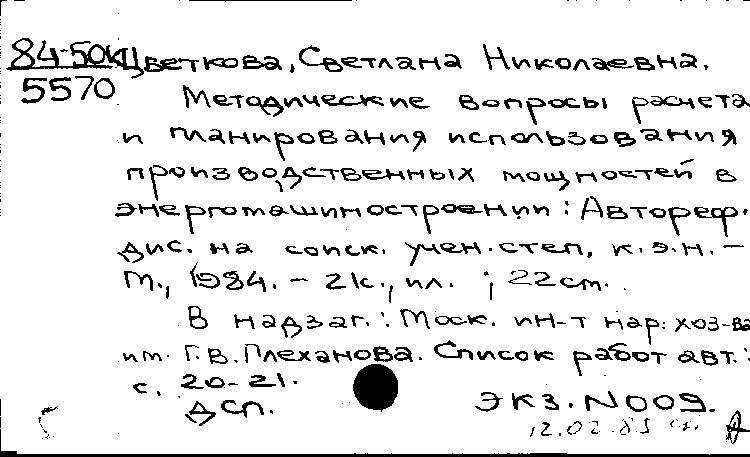 84-50к Цветкова, Светлана Николаевна.
5570
Методические вопросы расчета
и планирования использования
производственных мощностей в
энергомашиностроении: Автореф.
дис. на соиск. учен. степ. к.э.н. –
М., 1984. – 21с., ил. ; 22см.
В надзаг.: Моск. ин-т нар. хоз-ва
им. Г.В. Плеханова. Список работ авт.:
с. 20-21.
ДСП. экз. N009.
12.02.85